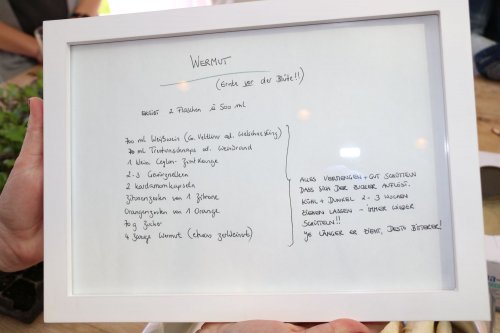 WERMUT
(Ernte vor der Blüte!!)
ergibt 2 Flaschen à 500 ml
700 ml Weißwein (Gr. Veltliner od. Welschriesling)
70 ml Tresternschnaps od. Weinbrand
1 klein Ceylon-Zimtstange
2-3 Gewürznelken
2 Kardamomkapseln
Zitronenzesten von 1 Zitrone
Orangenzesten von 1 Orange
70 g Zucker
4 Zweige Wermut (etwas zerkleinert)
ALLES VERMENGEN + GUT SCHÜTTELN
DASS SICH DER ZUCKER AUFLÖST.
KÜHL + DUNKEL 2-3 WOCHEN
ZIEHEN LASSEN - IMMER WIEDER
SCHÜTTELN!!
JE LÄNGER ER ZIEHT, DESTO BITTERER!